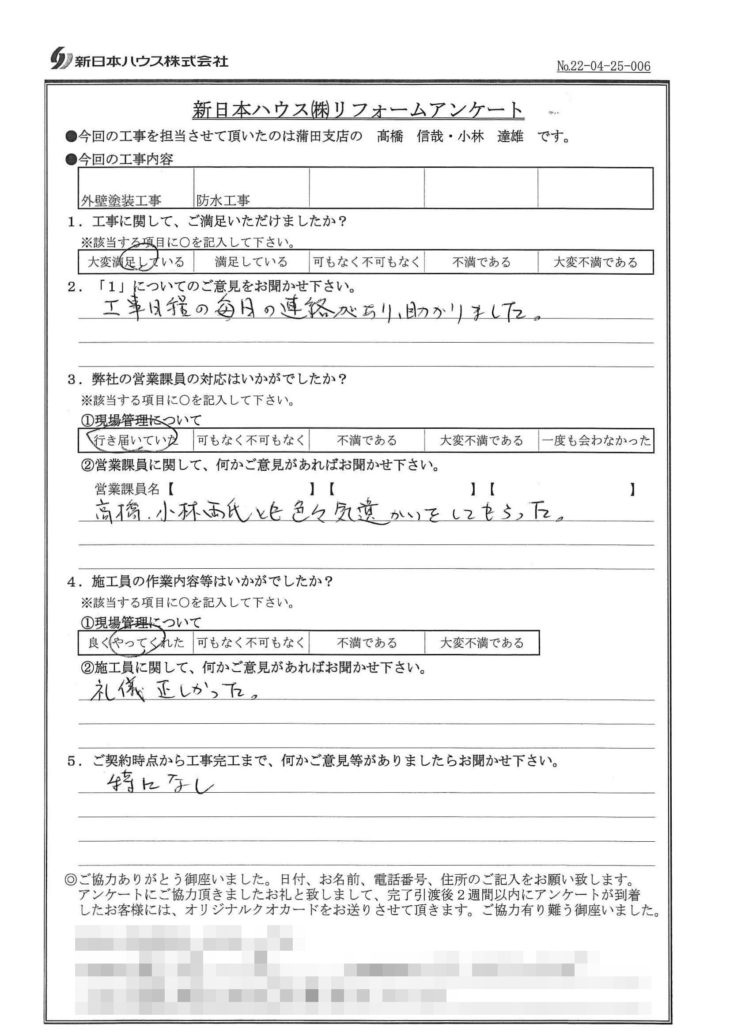 新日本ハウス株式会社
No.22-04-25-006
新日本ハウス㈱リフォームアンケート
●今回の工事を担当させて頂いたのは蒲田支店の 髙橋 信哉・小林 達雄 です。
●今回の工事内容
外壁塗装工事 防水工事
1．工事に関して、ご満足いただけましたか？
※該当する項目に○を記入して下さい。
大変満足している 満足している 可もなく不可もなく 不満である 大変不満である
2．「1」についてのご意見をお聞かせ下さい。
工事日程の毎日の連絡があり、助かりました。
3．弊社の営業課員の対応はいかがでしたか？
※該当する項目に○を記入して下さい。
①現場管理について
行き届いていた 可もなく不可もなく 不満である 大変不満である 一度も会わなかった
②営業課員に関して、何かご意見があればお聞かせ下さい。
営業課員名【 】【 】【 】
高橋、小林両氏とも色々気遣かいをしてもらった。
4．施工員の作業内容等はいかがでしたか？
※該当する項目に○を記入して下さい。
①現場管理について
良くやってくれた 可もなく不可もなく 不満である 大変不満である
②施工員に関して、何かご意見があればお聞かせ下さい。
礼儀正しかった。
5．ご契約時点から工事完工まで、何かご意見等がありましたらお聞かせ下さい。
特になし
◎ご協力ありがとう御座いました。日付、お名前、電話番号、住所のご記入をお願い致します。
アンケートにご協力頂きましたお礼と致しまして、完了引渡後２週間以内にアンケートが到着
したお客様には、オリジナルクオカードをお送りさせて頂きます。ご協力有り難う御座いました。